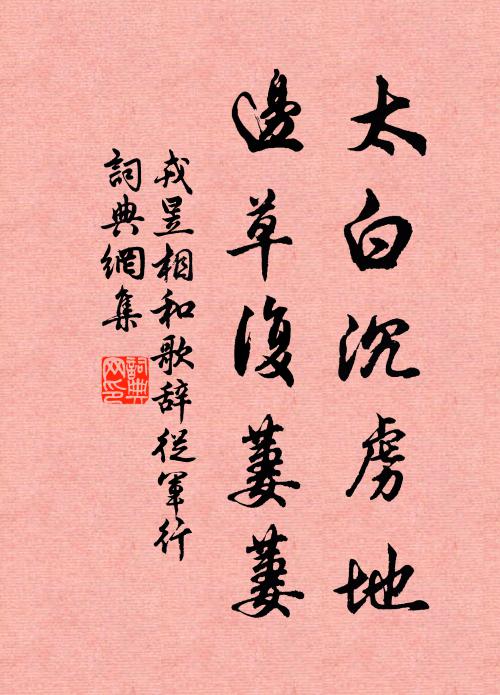 太白沉虏地
邊草復萋萋
戎昱相和歌辞從軍行
詞典網集
詞典网印